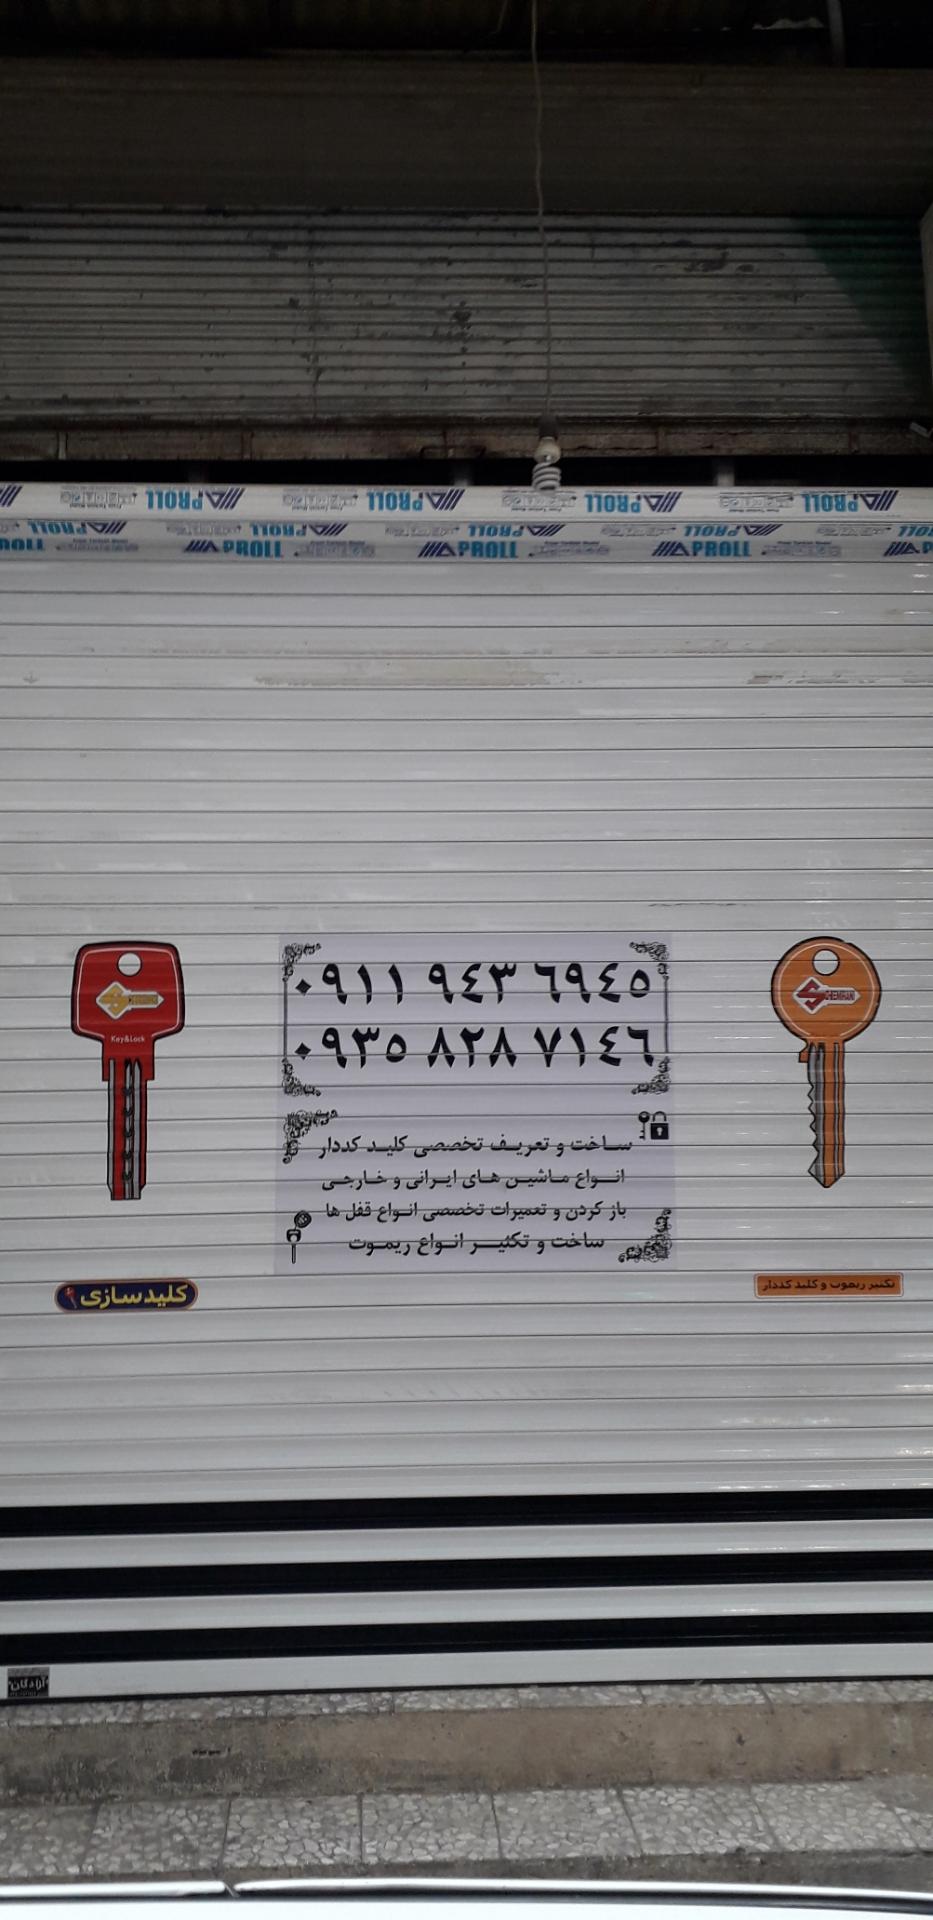 PROLL PROLL PROLL PROLL
PROLL PROLL PROLL
PROLL PROLL PROLL
۰۹۱۱ ۹٤۳ ٦۹٤٥
۰۹۳٥ ۸۲۸ ۷۱٤٦
ساخت و تعریف تخصصی کلید کددار
انواع ماشین های ایرانی و خارجی
باز کردن و تعمیرات تخصصی انواع قفل ها
ساخت و تکثیر انواع ریموت
Key&Lock
کلیدسازی
تکثیر ریموت و کلید کددار
آزادگان